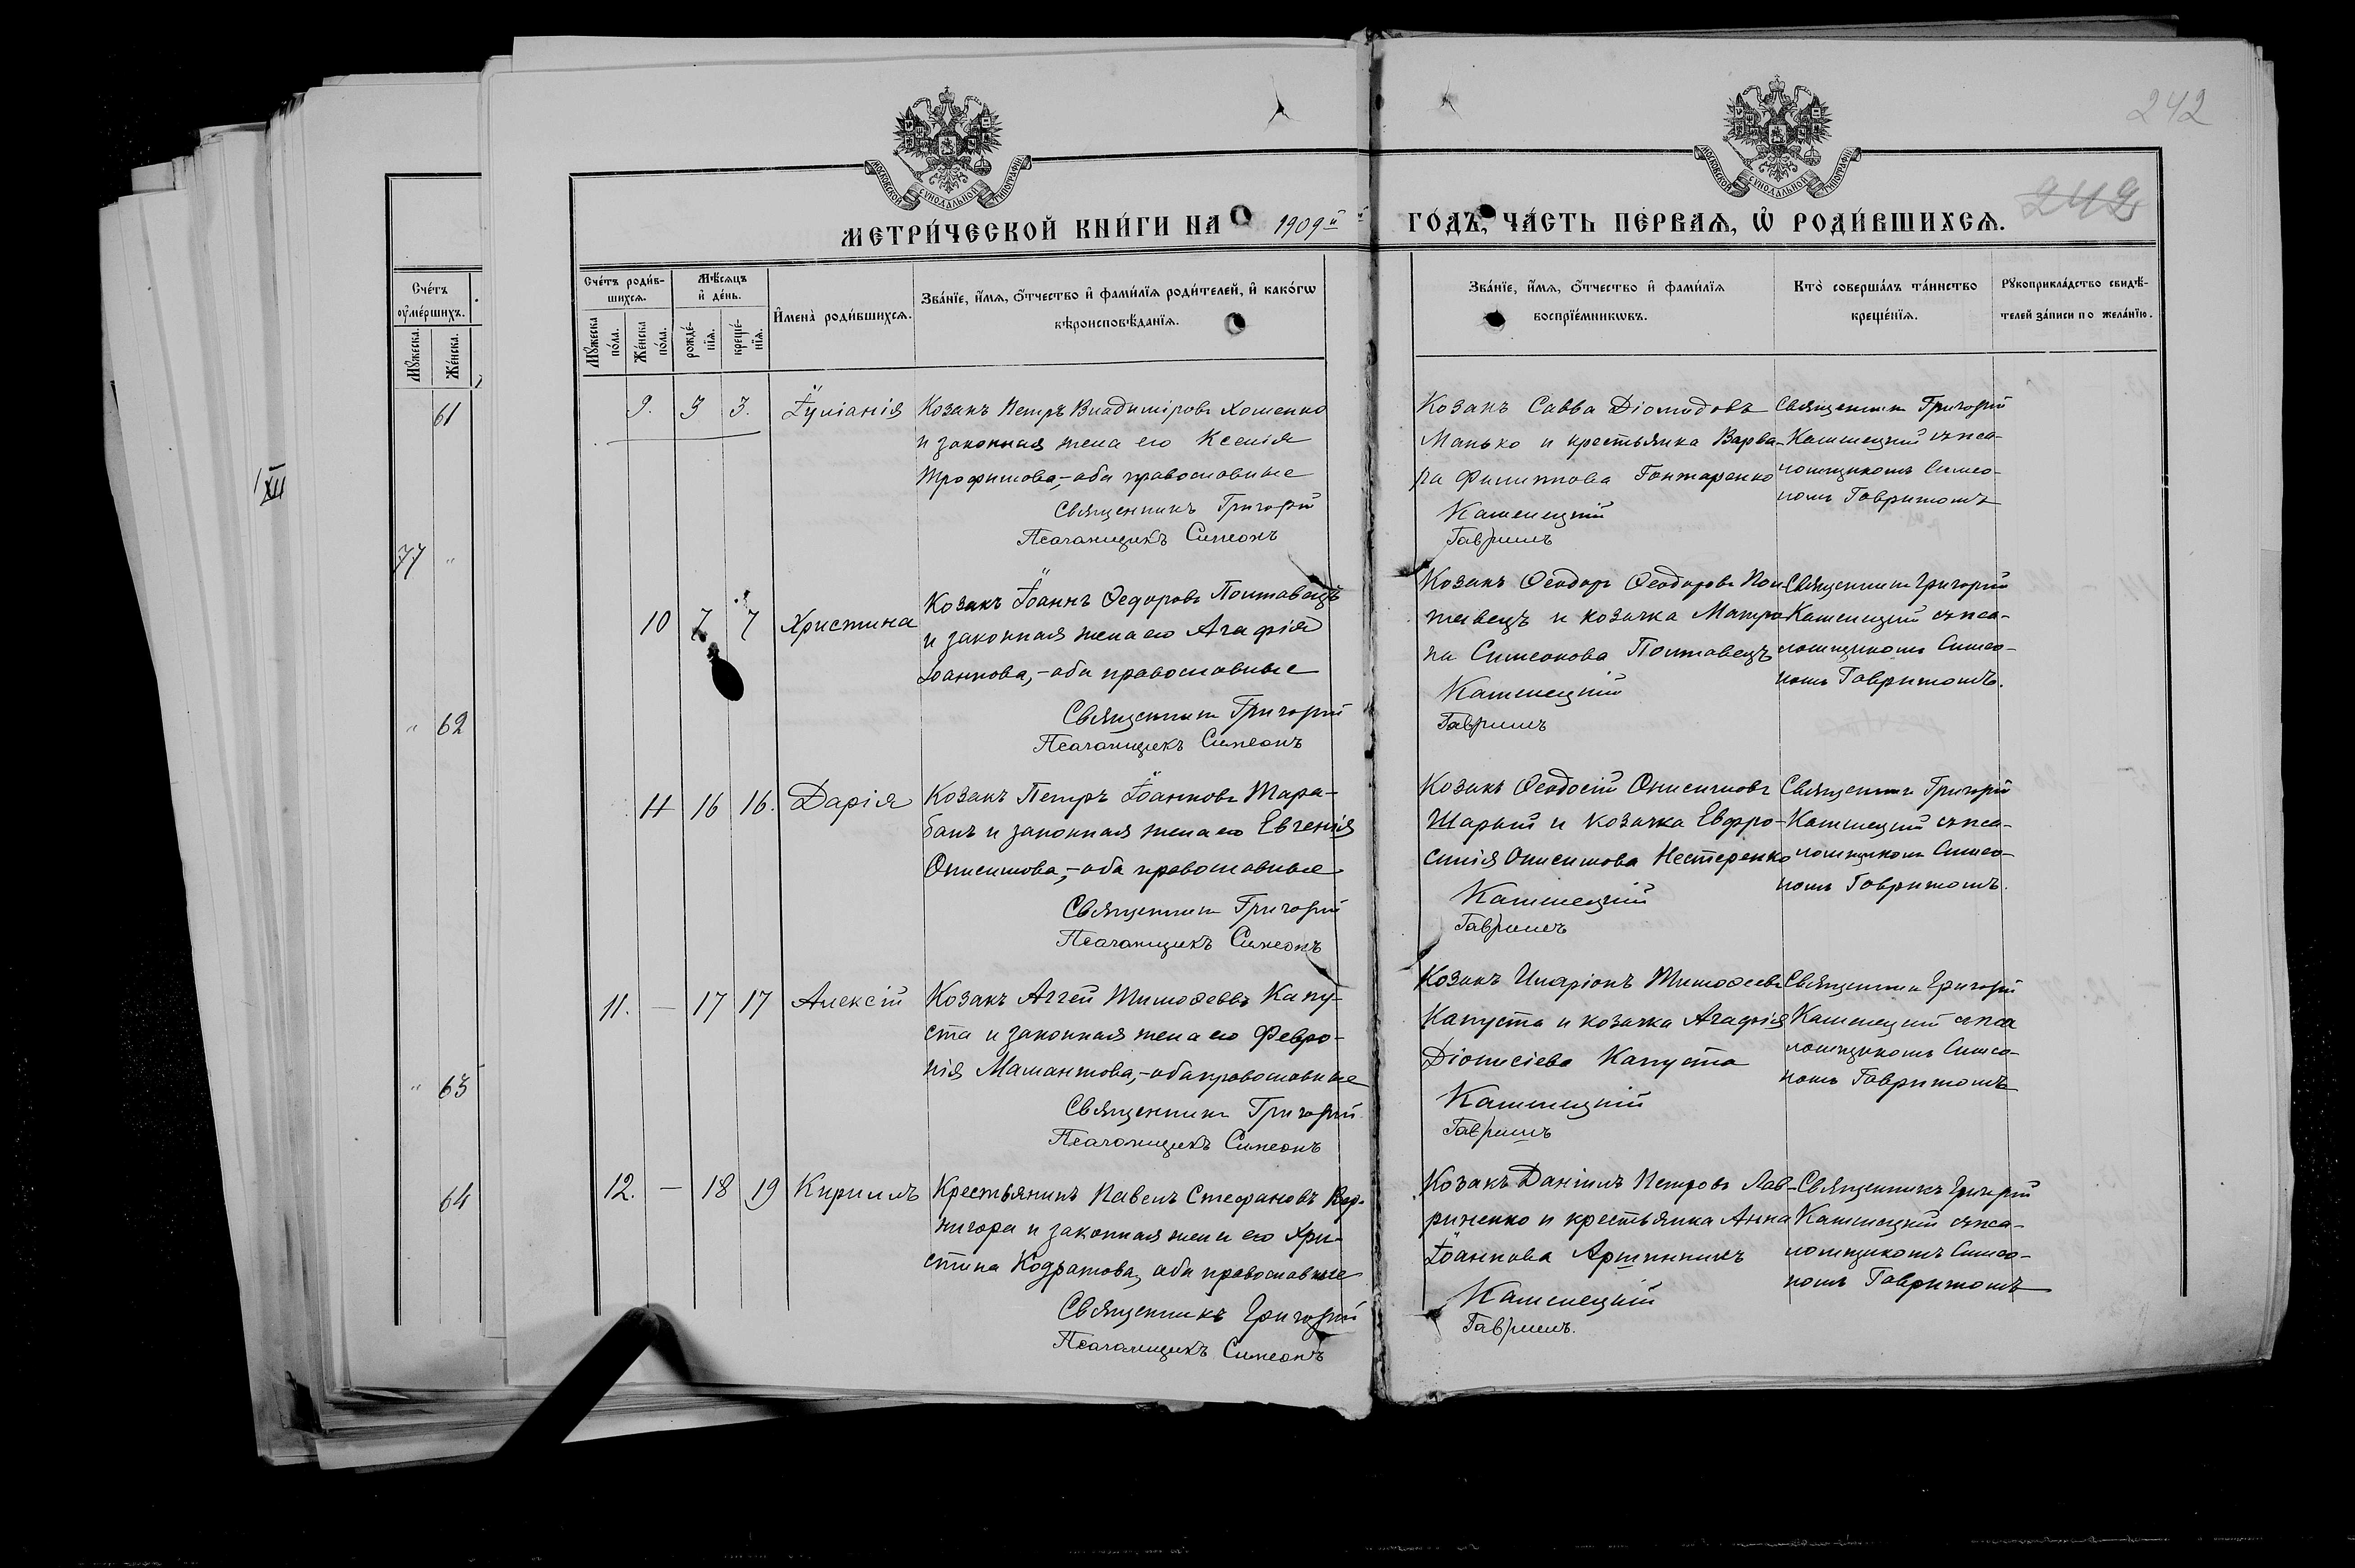 242
242
МОСКОВСКОЙ СУНОДАЛЬНОЙ ТИПОГРАФІИ
МОСКОВСКОЙ СУНОДАЛЬНОЙ ТИПОГРАФІИ
МЕТРИ́ЧЕСКОЙ КНИ́ГИ НА 1909й ГО́ДЪ, ЧА́СТЬ ПЕ́РВАЯ, Ѡ РОДИ́ВШИХСЯ.
Сче́тъ ᲂу҆ме́ршихъ.
Мꙋ́жеска.
Же́нска.
61
1/XII
77 "
" 62
" 63
64
Сче́тъ роди́в-
шихсѧ.
Мꙋ́жеска по́ла.
Же́нска по́ла.
Мѣ́сѧцъ и҆ де́нь.
рожде́-
нїѧ.
креще́-
нїѧ.
И҆мена̀ роди́вшихсѧ.
Зва́нїе, и҆́мѧ, ѻ҆́тчество и҆ фами́лїѧ роди́телей, и҆ како́гѡ
вѣроисповѣ́данїѧ.
Зва́нїе, и҆́мѧ, ѻ҆́тчество и҆ фами́лїѧ
воспрїе́мникѡвъ.
Кто̀ соверша́лъ та́инство
креще́нїѧ.
Рꙋкоприкла́дство свидѣ́-
телей за́писи по жела́нїю.
9. 3 3. Іуліанія
Козакъ Петръ Владиміровъ Хоменко
и законная жена его Ксенія
Трофимова,-оба православные
Священникъ Григорій
Псаломщикъ Симеонъ
Козакъ Савва Діомидовъ
Манько и крестьянка Варва-
ра Филиппова Гонтаренко
Каменецкій
Гавришъ
Священникъ Григорій
Каменецкій съ пса-
ломщикомъ Симео-
номъ Гавришомъ
10 7 7 Христина
Козакъ Іоаннъ Ѳедоровъ Полтавецъ
и законная жена его Агафія
Іоаннова,-оба православные
Священникъ Григорій
Псаломщикъ Симеонъ
Козакъ Ѳеодоръ Ѳеодоровъ Пол-
тавецъ и козачка Матро-
на Симеонова Полтавецъ
Каменецкій
Гавришъ
Священникъ Григорій
Каменецкій съ пса-
ломщикомъ Симео-
номъ Гавришомъ.
11 16 16. Дарія
Козакъ Петръ Іоанновъ Тара-
банъ и законная жена его Евгенія
Онисимова,-оба православные
Священникъ Григорій
Псаломщикъ Симеонъ
Козакъ Ѳеодосій Онисимовъ
Шарый и козачка Евфро-
синія Онисимова Нестеренко
Каменецкій
Гавришъ
Священникъ Григорій
Каменецкій съ пса-
ломщикомъ Симео-
номъ Гавришомъ.
11. — 17 17 Алексій
Козакъ Аггей Тимоѳеевъ Капу-
ста и законная жена его Февро-
нія Мамантова,-оба православные
Священникъ Григорій
Псаломщикъ Симеонъ
Козакъ Иларіонъ Тимоѳеевъ
Капуста и козачка Агафія
Діонисіева Капуста
Каменецкій
Гавришъ
Священникъ Григорій
Каменецкій съ пса
ломщикомъ Симео-
номъ Гавришомъ
12. — 18 19 Кириллъ
Крестьянинъ Павелъ Стефановъ Вер-
нигора и законная жена его Хри-
стина Кодратова, оба православные
Священникъ Григорій
Псаломщикъ Симеонъ
Козакъ Даніилъ Петровъ Лав-
риненко и крестьянка Анна
Іоаннова
Каменецкій
Гавришъ.
Священникъ Григорій
Каменецкій съ пса-
ломщикомъ Симео-
номъ Гавришомъ